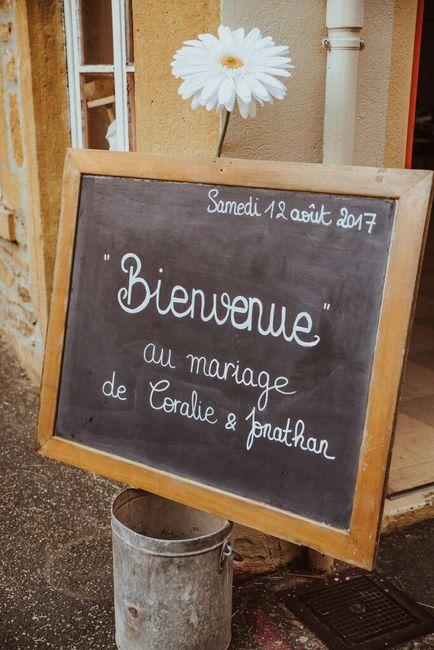 Samedi 12 août 2017
"Bienvenue"
au mariage
de Coralie & Jonathan